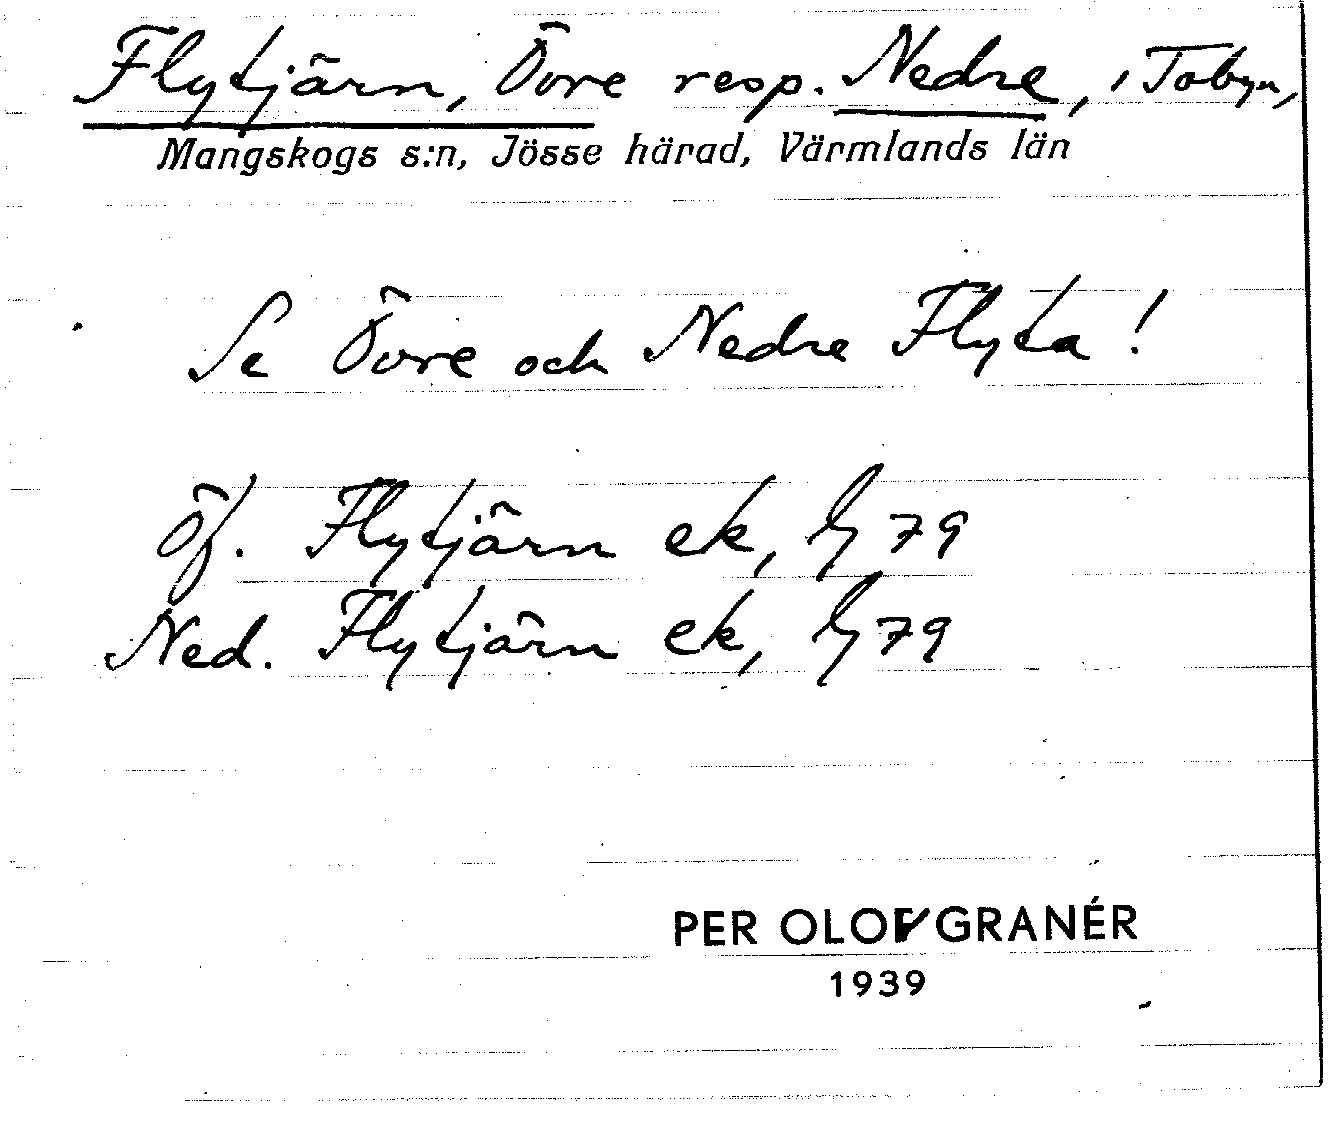 Flytjärn, Övre resp. Nedre, i Tobyn,
Mangskogs s:n, Jösse härad, Värmlands län
Se Övre och Nedre Flyta!
Öf. Flytjärn ek, 79
Ned. Flytjärn ek, 79
PER OLOF GRANÉR
1939